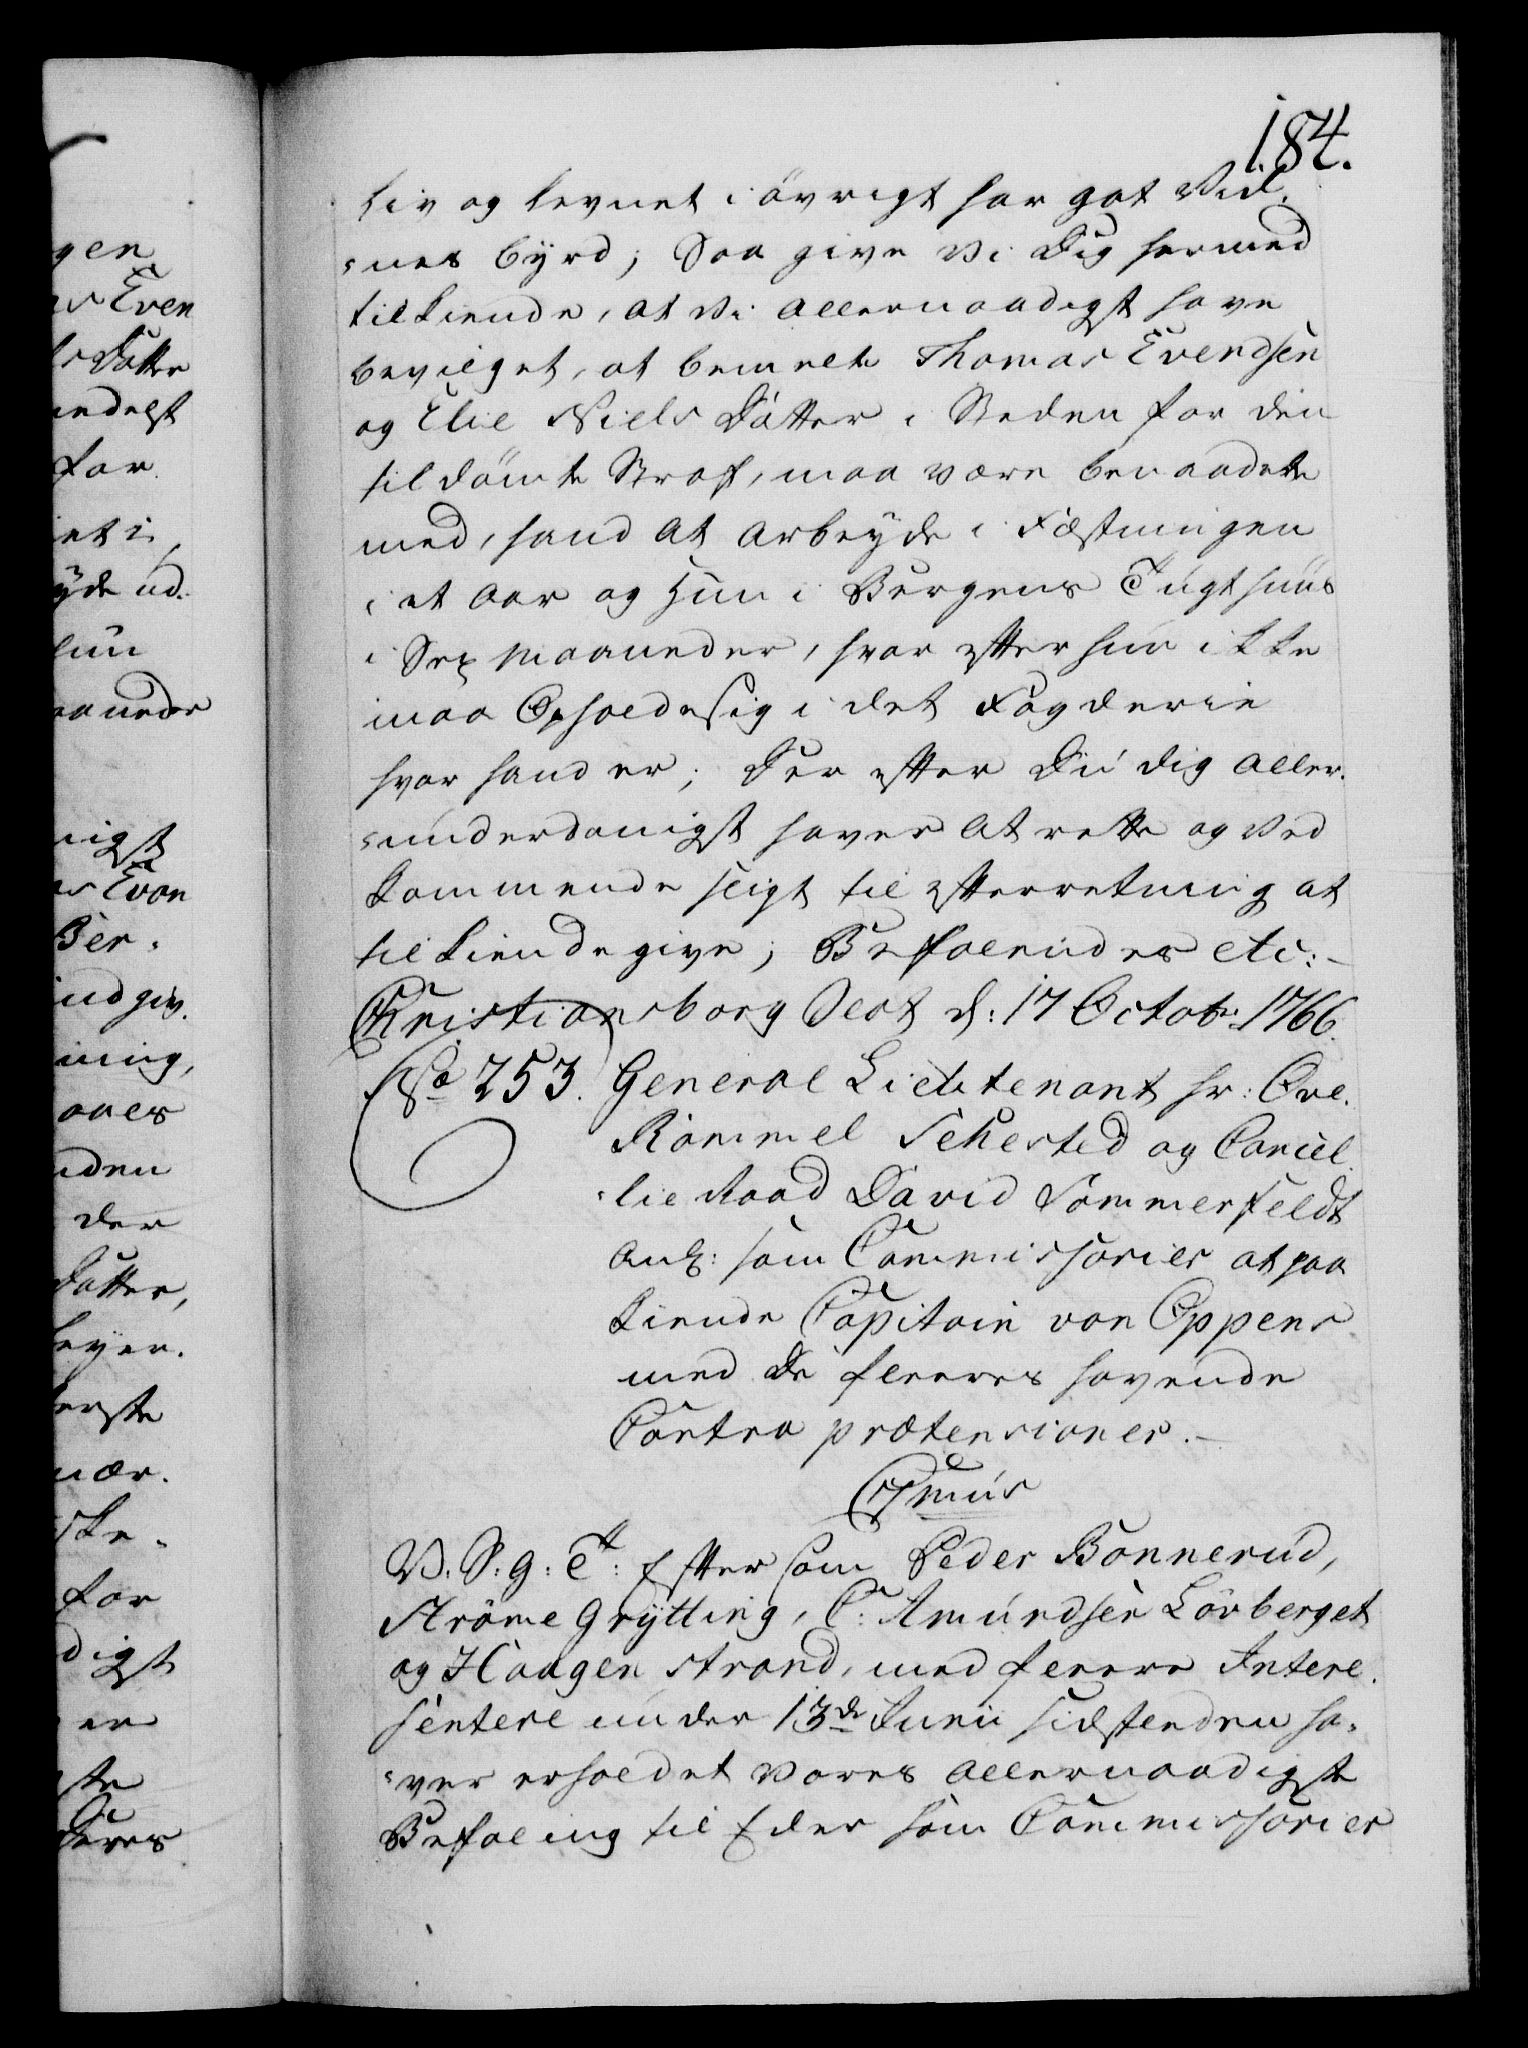 184.
Liv og Levnet i övrigt har got Vid-
-nes byrd; Saa give Vi Dig hermed
tilkiende, at Vi allernaadigst have
bevilget, at bemelte Thomas Evendsen
og Elie Niels Dötter i Steden for den
til dömte Straf, maa være benaadede
med, hand at arbeyde i Fæstningen
i et Aar og Hun i Bergens Tugthuus
i Sex Maaneder, hvor efter hun ikke
maa Opholde sig i det Fogderie
hvor hand er; Der efter Du dig aller-
-underdanigst haver at rette og Ved
kommende sligt til Efterretning at
tilkiende give; Befalendes etc:
Christiansborg Slot d: 17 Octobr: 1766.
No 253. General Lieutenant hr: Ove
Römmel Sehested og Cancel-
-lie Raad David Sommerfeldt
anl: som Commissarier at paa
kiende Capitain von Oppens
med De fleeres havende
Contra prætensioner.
C7mus
V. S: g: Et: Efter som Peder Bonnerud,
Ströme Grÿtting, C: Amundsen Lövberget
og Haagen Strand, med fleere Intere-
sentere under 13de Junii sidstleden ha-
-ver erholdet Vores allernaadigste
Befaling til Eder som Commissarier
gen
Even
Dötter
medelst
for
et i
yde ud.
hun
aaneder
nigst
Even
Ber-
nd giv.
ning,
den
der
Dötter,
for
digt
er
ste
Deres